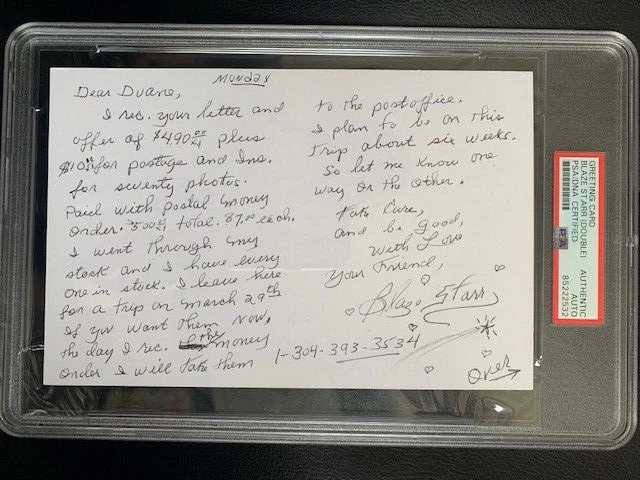 Monday
Dear Duane,
I rec. your letter and
offer of $490.00 plus
$10.00 for postage and Ins.
for seventy photos.
Paid with postal money
order. $500.00 total. $7.00 each.
I went through my
stock and I have every
one in stock. I leave here
for a trip on March 29th
If you want them now,
the day I rec. the money
order I will take them
to the postoffice.
I plan to be on this
trip about six weeks.
So let me know one
way or the other.
Take Care,
and be Good,
With Love
Your Friend,
Blaze Starr
1-304-393-3534
Over
GREETING CARD
BLAZE STARR (DOUBLE)
PSA/DNA CERTIFIED
AUTHENTIC
AUTO
85222532
PSA